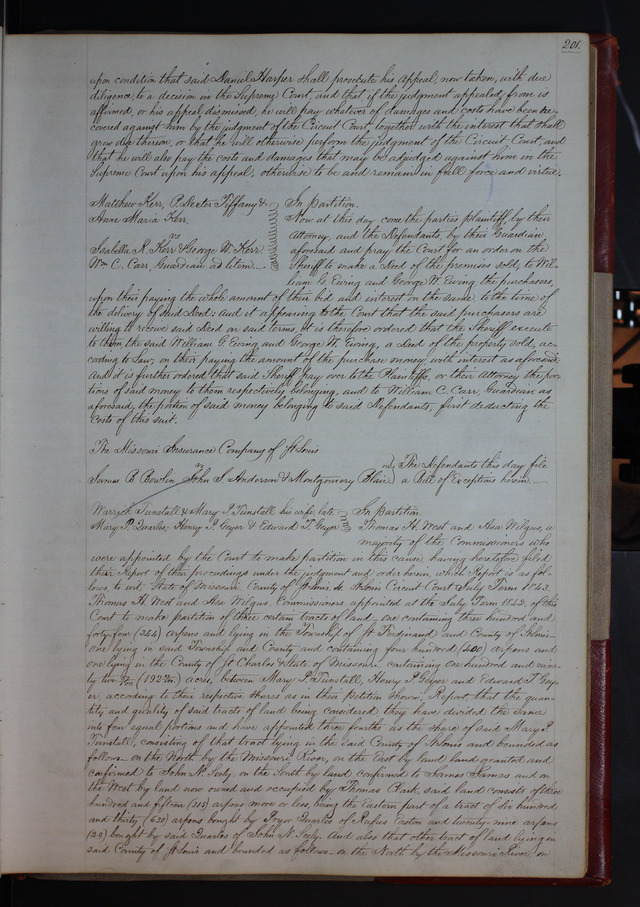 201.
upon condition that said Daniel Harper shall prosecute his appeal, now taken, with due
diligence, to a decision in the Supreme Court, and that if the judgment appealed from is
affirmed, or his appeal dismissed, he will pay whatever of damages and costs have been re-
covered against him by the judgment of the Circuit Court, together with the interest that shall
grow due thereon, or that he will otherwise perform the judgment of the Circuit Court, and
that he will also pay the costs and damages that may be adjudged against him in the
Supreme Court upon his appeal; otherwise to be and remain in full force and virtue.
Matthew Kerr, P. Dexter Tiffany &
Anne Maria Kerr.
vs
Isabella R. Kerr & George W. Kerr
Wm. C. Carr, Guardian ad litem.
In partition.
Now at this day come the parties plaintiff, by their
attorney, and the Defendants, by their Guardian
aforesaid and pray the Court for an order on the
Sheriff to make a Deed of the premises sold, to Wil-
liam G. Ewing and George W. Ewing the purchasers,
upon their paying the whole amount of their bid and interest on the same to the time of
the delivery of said Deed: and it appearing to the Court that the said purchasers are
willing to receive said Deed on said terms, it is therefore ordered that the Sheriff execute
to them, the said William G. Ewing and George W. Ewing, a Deed of the property sold, ac-
cording to Law, on their paying the amount of the purchase money with interest as aforesaid.
And it is further ordered that said Sheriff pay over to the Plaintiffs, or their attorney the por-
tions of said money to them respectively belonging, and to William C. Carr, Guardian as
aforesaid, the portion of said money belonging to said Defendants, first deducting the
costs of this suit.
The Missouri Insurance Company of St Louis
vs
James B. Bowlin John S. Anderson & Montgomery Blair
The Defendants this day file
a Bill of Exceptions herein.
Tunstall & Mary P. Tunstall his wife, late
Mary P. Quarles, Henry P. Geyer & Edward T. Geyer
In Partition.
Thomas H. West and Asa Wilgus, a
majority of the Commissioners who
were appointed by the Court to make partition in this cause, having heretofore filed
their Report of their proceedings under the judgment and order herein, which Report is as fol-
lows, to wit: State of Missouri, County of St Louis, St Louis Circuit Court July Term 1843.
Thomas H. West and Asa Wilgus, Commissioners appointed at the July Term 1842, of this
Court to make partition of three certain tracts of land one containing three hundred and
forty four (344) arpens and lying in the Township of St Ferdinand and County of St Louis
one lying in said Township and County and containing four hundred (400) arpens and
one lying in the County of St Charles & State of Missouri, containing one hundred and nine-
ty two acres, between Mary P. Tunstall, Henry P. Geyer and Edward T. Gey-
er, according to their respective shares as in their petition shown, Report that the quan-
tity and quality of said tracts of land being considered, they have divided the same
into four equal portions and have appointed three fourths as the share of said Mary P.
Tunstall, consisting of that tract lying in the said County of St Louis and bounded as
follows on the North by the Missouri River, on the East by land granted and
confirmed to John N. Seely, on the South by land confirmed to James James and on
the West by land now owned and occupied by Thomas Park, said land consists of three
hundred and fifteen (315) arpens more or less, being the Eastern part of a tract of six hundred
and thirty (630) arpens bought by Pryor Quarles of Rufus Easton and twenty nine arpens
(29) bought by said Quarles of John N. Seely. And also that other tract of land lying in
said County of St Louis and bounded as follows on the North by the Missouri River, on